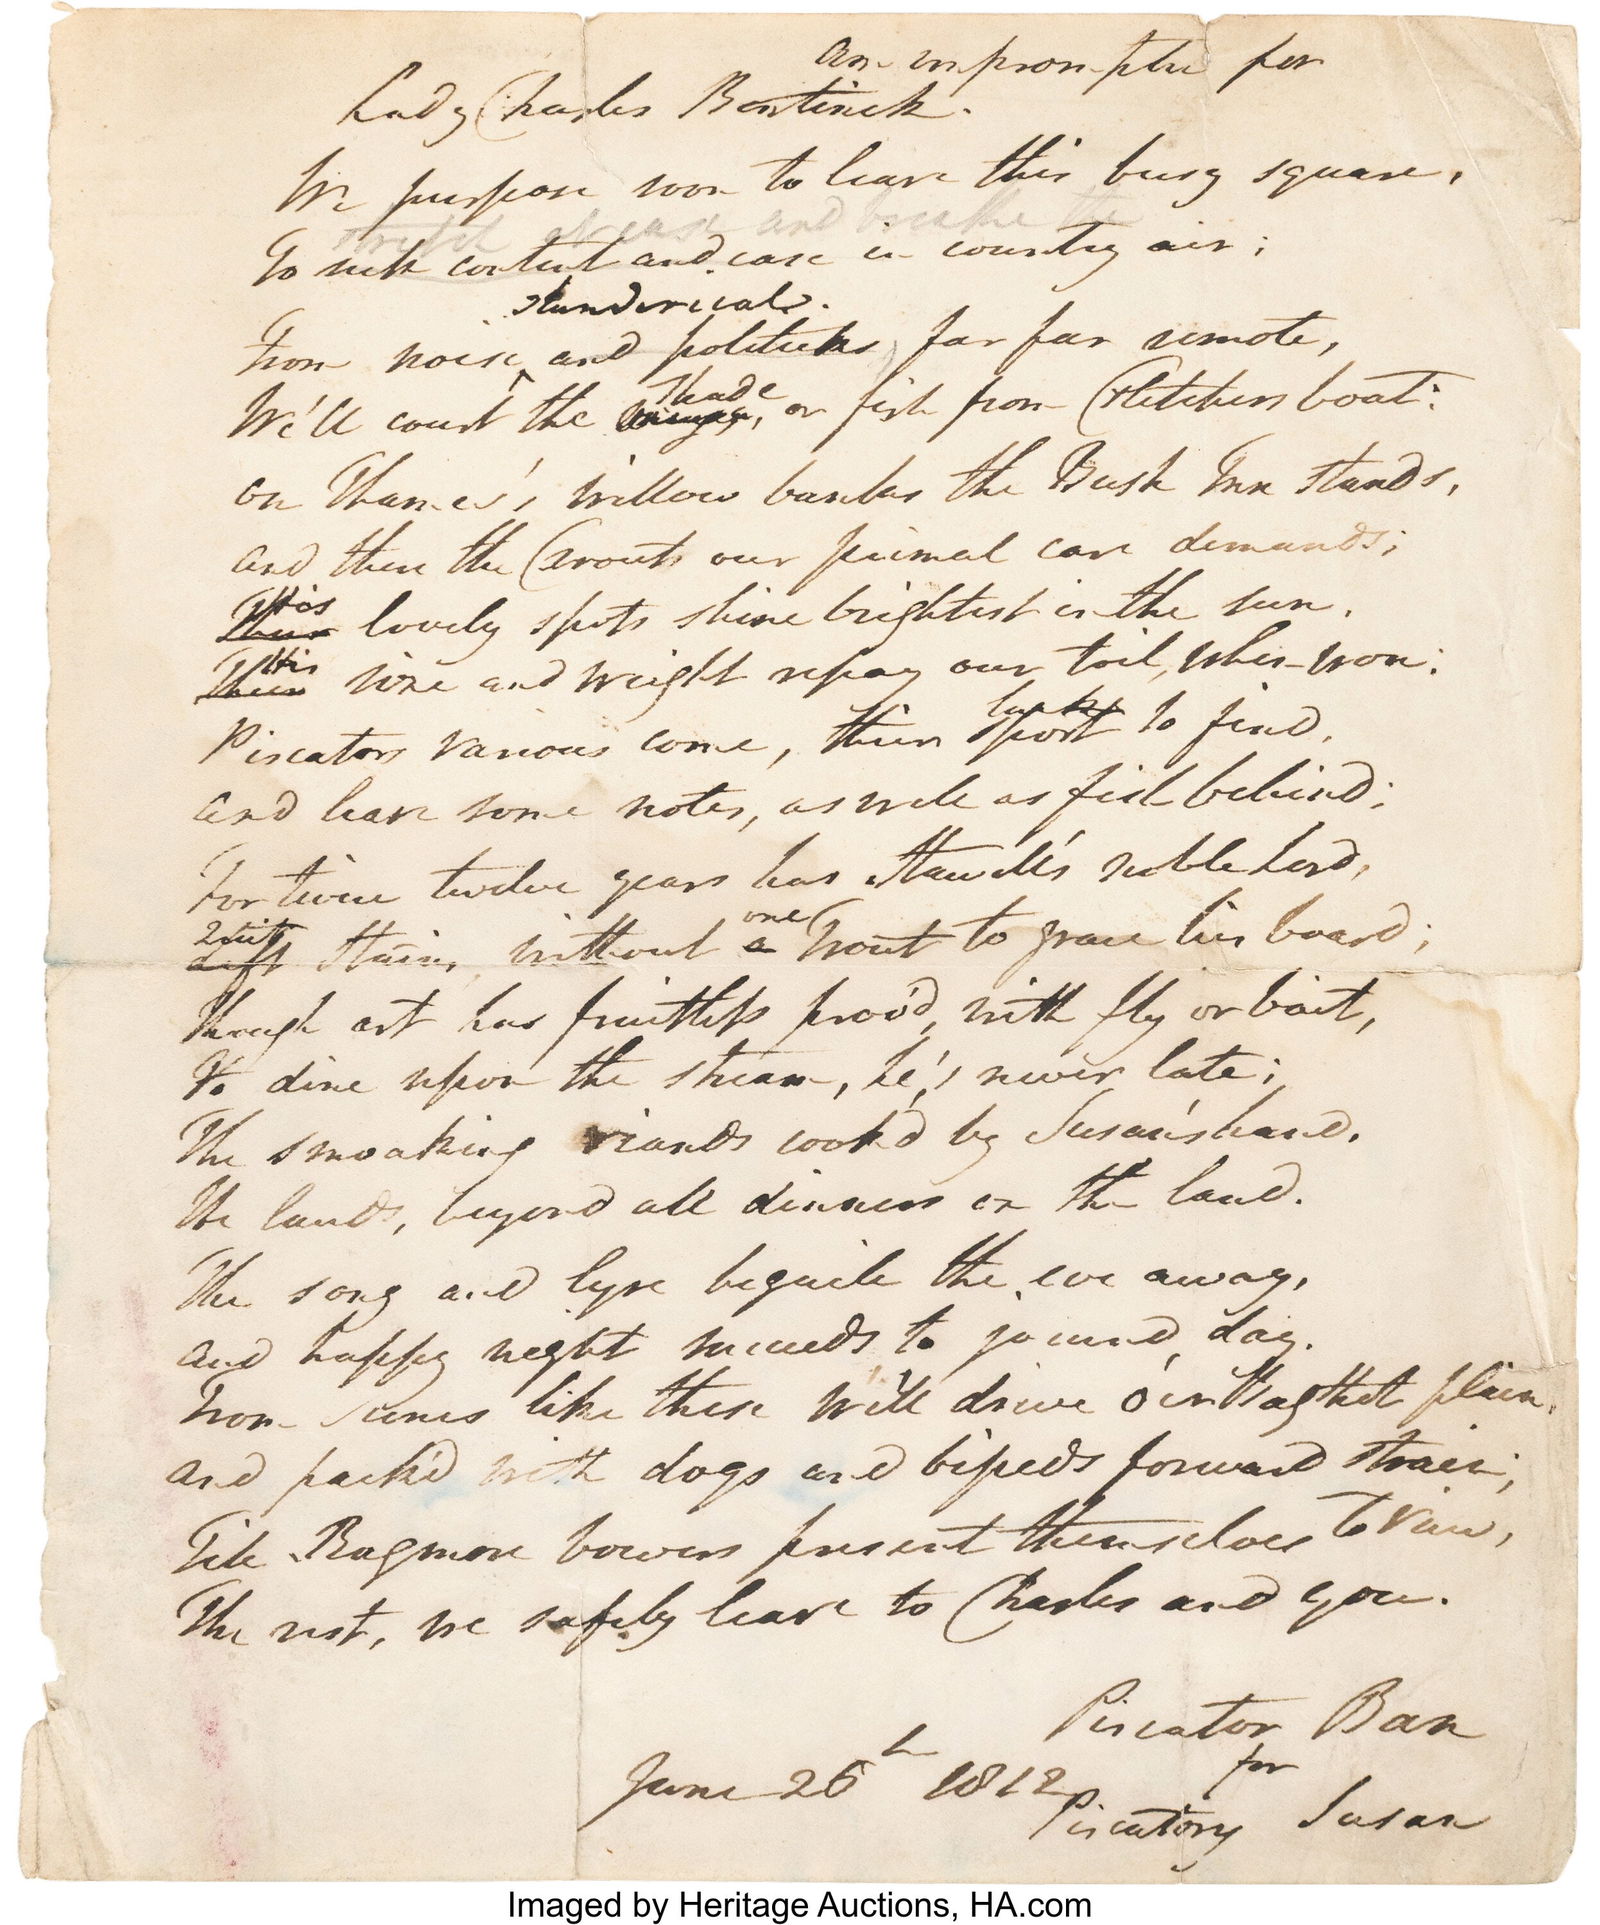 An impromptu for
Lady Charles Bentinck.
We purpose soon to leave this busy square,
and breathe the
To seek content and ease in country air;
slanderical
From noise and politicks far far remote,
Shade
We'll court the or fish from Fletchers boat:
On Thames's willow banks the Bush Inn stands,
And there the Trouts our primal care demands;
His
Their lovely spots shine brightest in the sun,
His
Their size and weight repay our toil, when won:
luck
Piscators various come, their sport to find,
And leave some notes, as well as fish behind;
For twice twelve years has Stawell's noble Lord,
Quit
Left Stains, without a Trout to grace his board;
one
Though art has fruitless prov'd, with fly or bait,
To dine upon the stream, he's never late;
The smoaking viands cook'd by Susan's hand,
He lauds, beyond all dinners on the land.
The song and lyre beguile the eve away,
And happy night succeeds to jocund day.
From scenes like these we'll drive o'er Bagshot plain,
And pack'd with dogs and bipeds forward strain;
Till Ragmore bowers present themselves to view,
The rest, we safely leave to Charles and you.
Piscator Ban
for
June 26th 1812
Piscatory Susan
Imaged by Heritage Auctions, HA.com